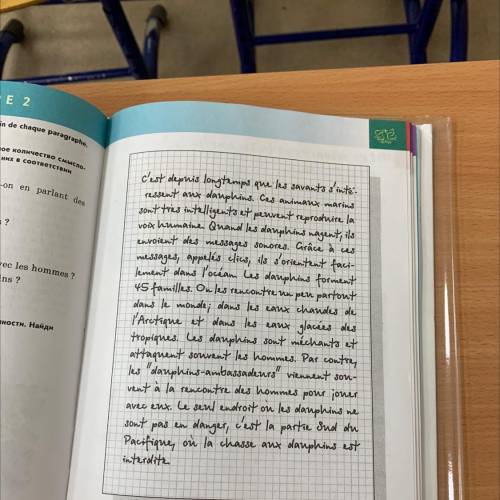 E 2
in de chaque paragraphe.
ое количество смысло-
них в соответствии
-on en parlant des
s ?
vec les hommes ?
ins ?
нности. Найди
C'est depuis longtemps que les savants s'inté-
ressent aux dauphins. Ces animaux marins
sont très intelligents et peuvent reproduire la
voix humaine. Quand les dauphins nagent, ils
envoient des messages sonores. Grâce à ces
messages, appelés clics, ils s'orientent faci-
lement dans l'océan. Les dauphins forment
45 familles. On les rencontre un peu partout
dans le monde; dans les eaux chaudes de
l'Arctique et dans les eaux glacées des
tropiques. Les dauphins sont méchants et
attaquent souvent les hommes. Par contre,
les "dauphins-ambassadeurs" viennent sou-
vent à la rencontre des hommes pour jouer
avec eux. Le seul endroit où les dauphins ne
sont pas en danger, c'est la partie Sud du
Pacifique, où la chasse aux dauphins est
interdite.